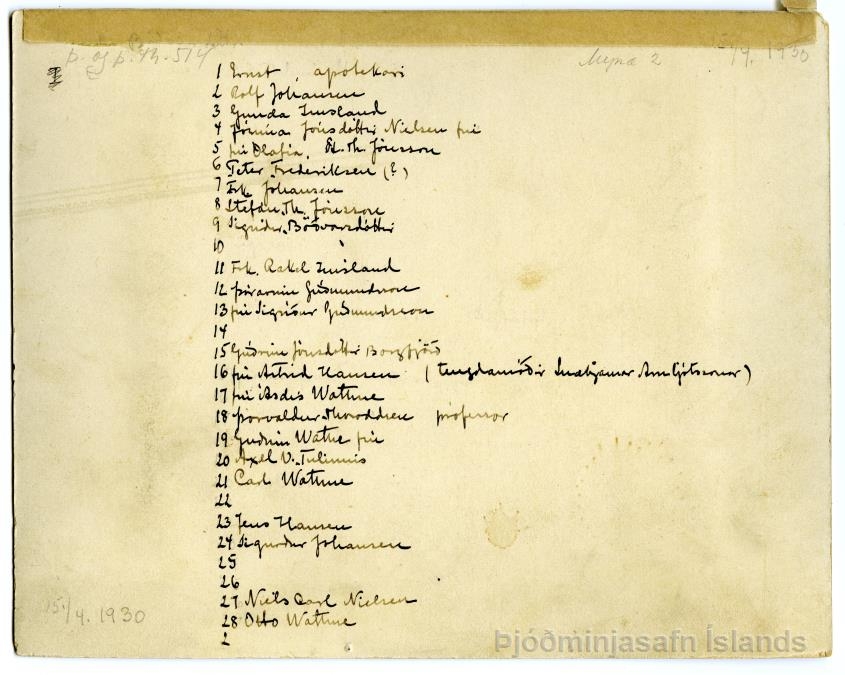 Þ. og Þ. Th. 514
Mynd 2
/4. 1930
1 Ernst, apotekari
2 Rolf Johansen
3 Gunda Imsland
4 Jónína Jónsdóttir Nielsen frú
5 frú Ólafía, St. Th. Jónsson
6 Peter Frederiksen (?)
7 Frk. Johansen
8 Stefán Th. Jónsson
9 Sigríður Böðvarsdóttir
10
11 Frk. Rakel Imsland
12 Þórarinn Guðmundsson
13 frú Sigríður Guðmundsson
14
15 Guðrún Jónsdóttir Borgfjörð
16 frú Astrid Hansen (tengdamóðir Snæbjarnar Arnljótssonar)
17 frú Ásdís Wathne
18 Þorvaldur Thoroddsen prófessor
19 Guðrún Wathne frú
20 Axel V. Tulinius
21 Carl Wathne
22
23 Jens Hansen
24 Sigurður Johansen
25
26
27 Niels Carl Nielsen
28 Otto Wathne
2
15/4. 1930
Þjóðminjasafn Íslands